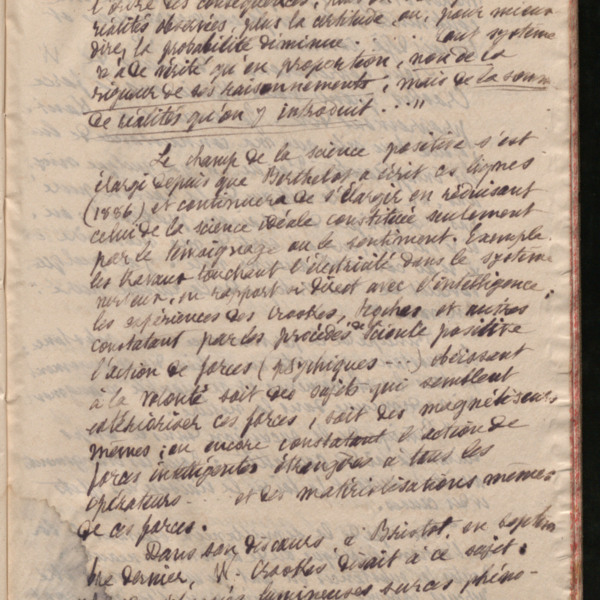 l'ordre des conséquences, plus
réalités observées, plus la certitude ou, pour mieux
dire, la probabilité diminue . . . . . . tout système
n'a de vérité qu'en proportion, non de la
rigueur de ses raisonnements, mais de la somme
de réalités qu'on y introduit . . . "
Le champ de la science positive s'est
élargi depuis que Berthelot a écrit ces lignes
(1886) et continuera de s'élargir en réduisant
celui de la science idéale constituée seulement
par le témoignage ou le sentiment. Exemple.
les travaux touchant l'électricité dans le système
nerveux, en rapport si direct avec l'intelligence;
les expériences des Crookes, et autres
constatant par les procédés de science positive
l'action de forces (psychiques ....) obéissant
à la volonté soit des sujets qui semblent
extérioriser ces forces, soit des magnétiseurs
mêmes; ou encore constatant l'action de
forces intelligentes étrangères à tous les
opérateurs . . . et des matérialisations mêmes
de ces forces.
Dans son discours à Bristol, en septem
bre dernier, W. Crookes disait à ce sujet.
lumineuses sur ces phéno-